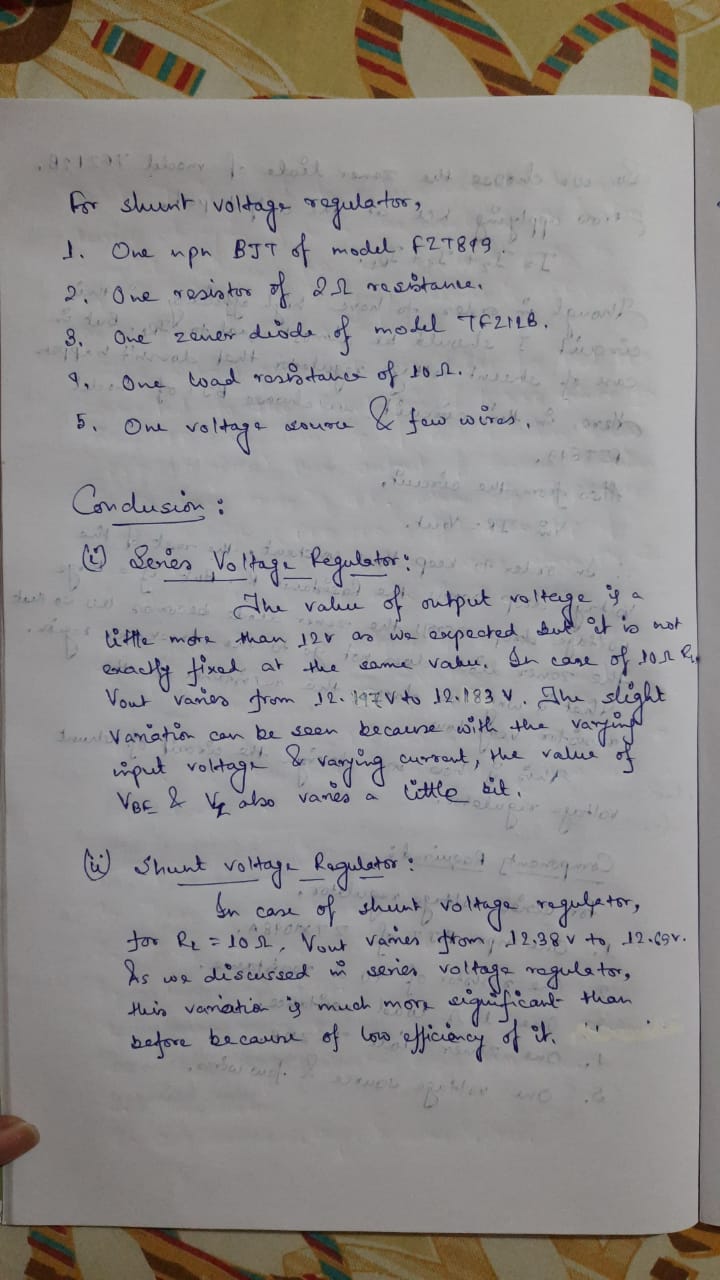 For shunt voltage regulator,
1. One npn BJT of model FZT849.
2. One resistor of 2Ω resistance.
3. One zener diode of model TFZ12B.
4. One load resistance of 10Ω.
5. One voltage source & few wires.
Conclusion:
(i) Series Voltage Regulator:
The value of output voltage is a
little more than 12v as we expected but it is not
exactly fixed at the same value. In case of 10Ω RL,
Vout varies from 12.147V to 12.183 V. The slight
variation can be seen because with the varying
input voltage & varying current, the value of
VBE & VZ also varies a little bit.
(ii) Shunt voltage Regulator:
In case of shunt voltage regulator,
for RL = 10Ω, Vout varies from 12.38 v to 12.69v.
As we discussed in series voltage regulator,
this variation is much more significant than
before because of low efficiency of it.